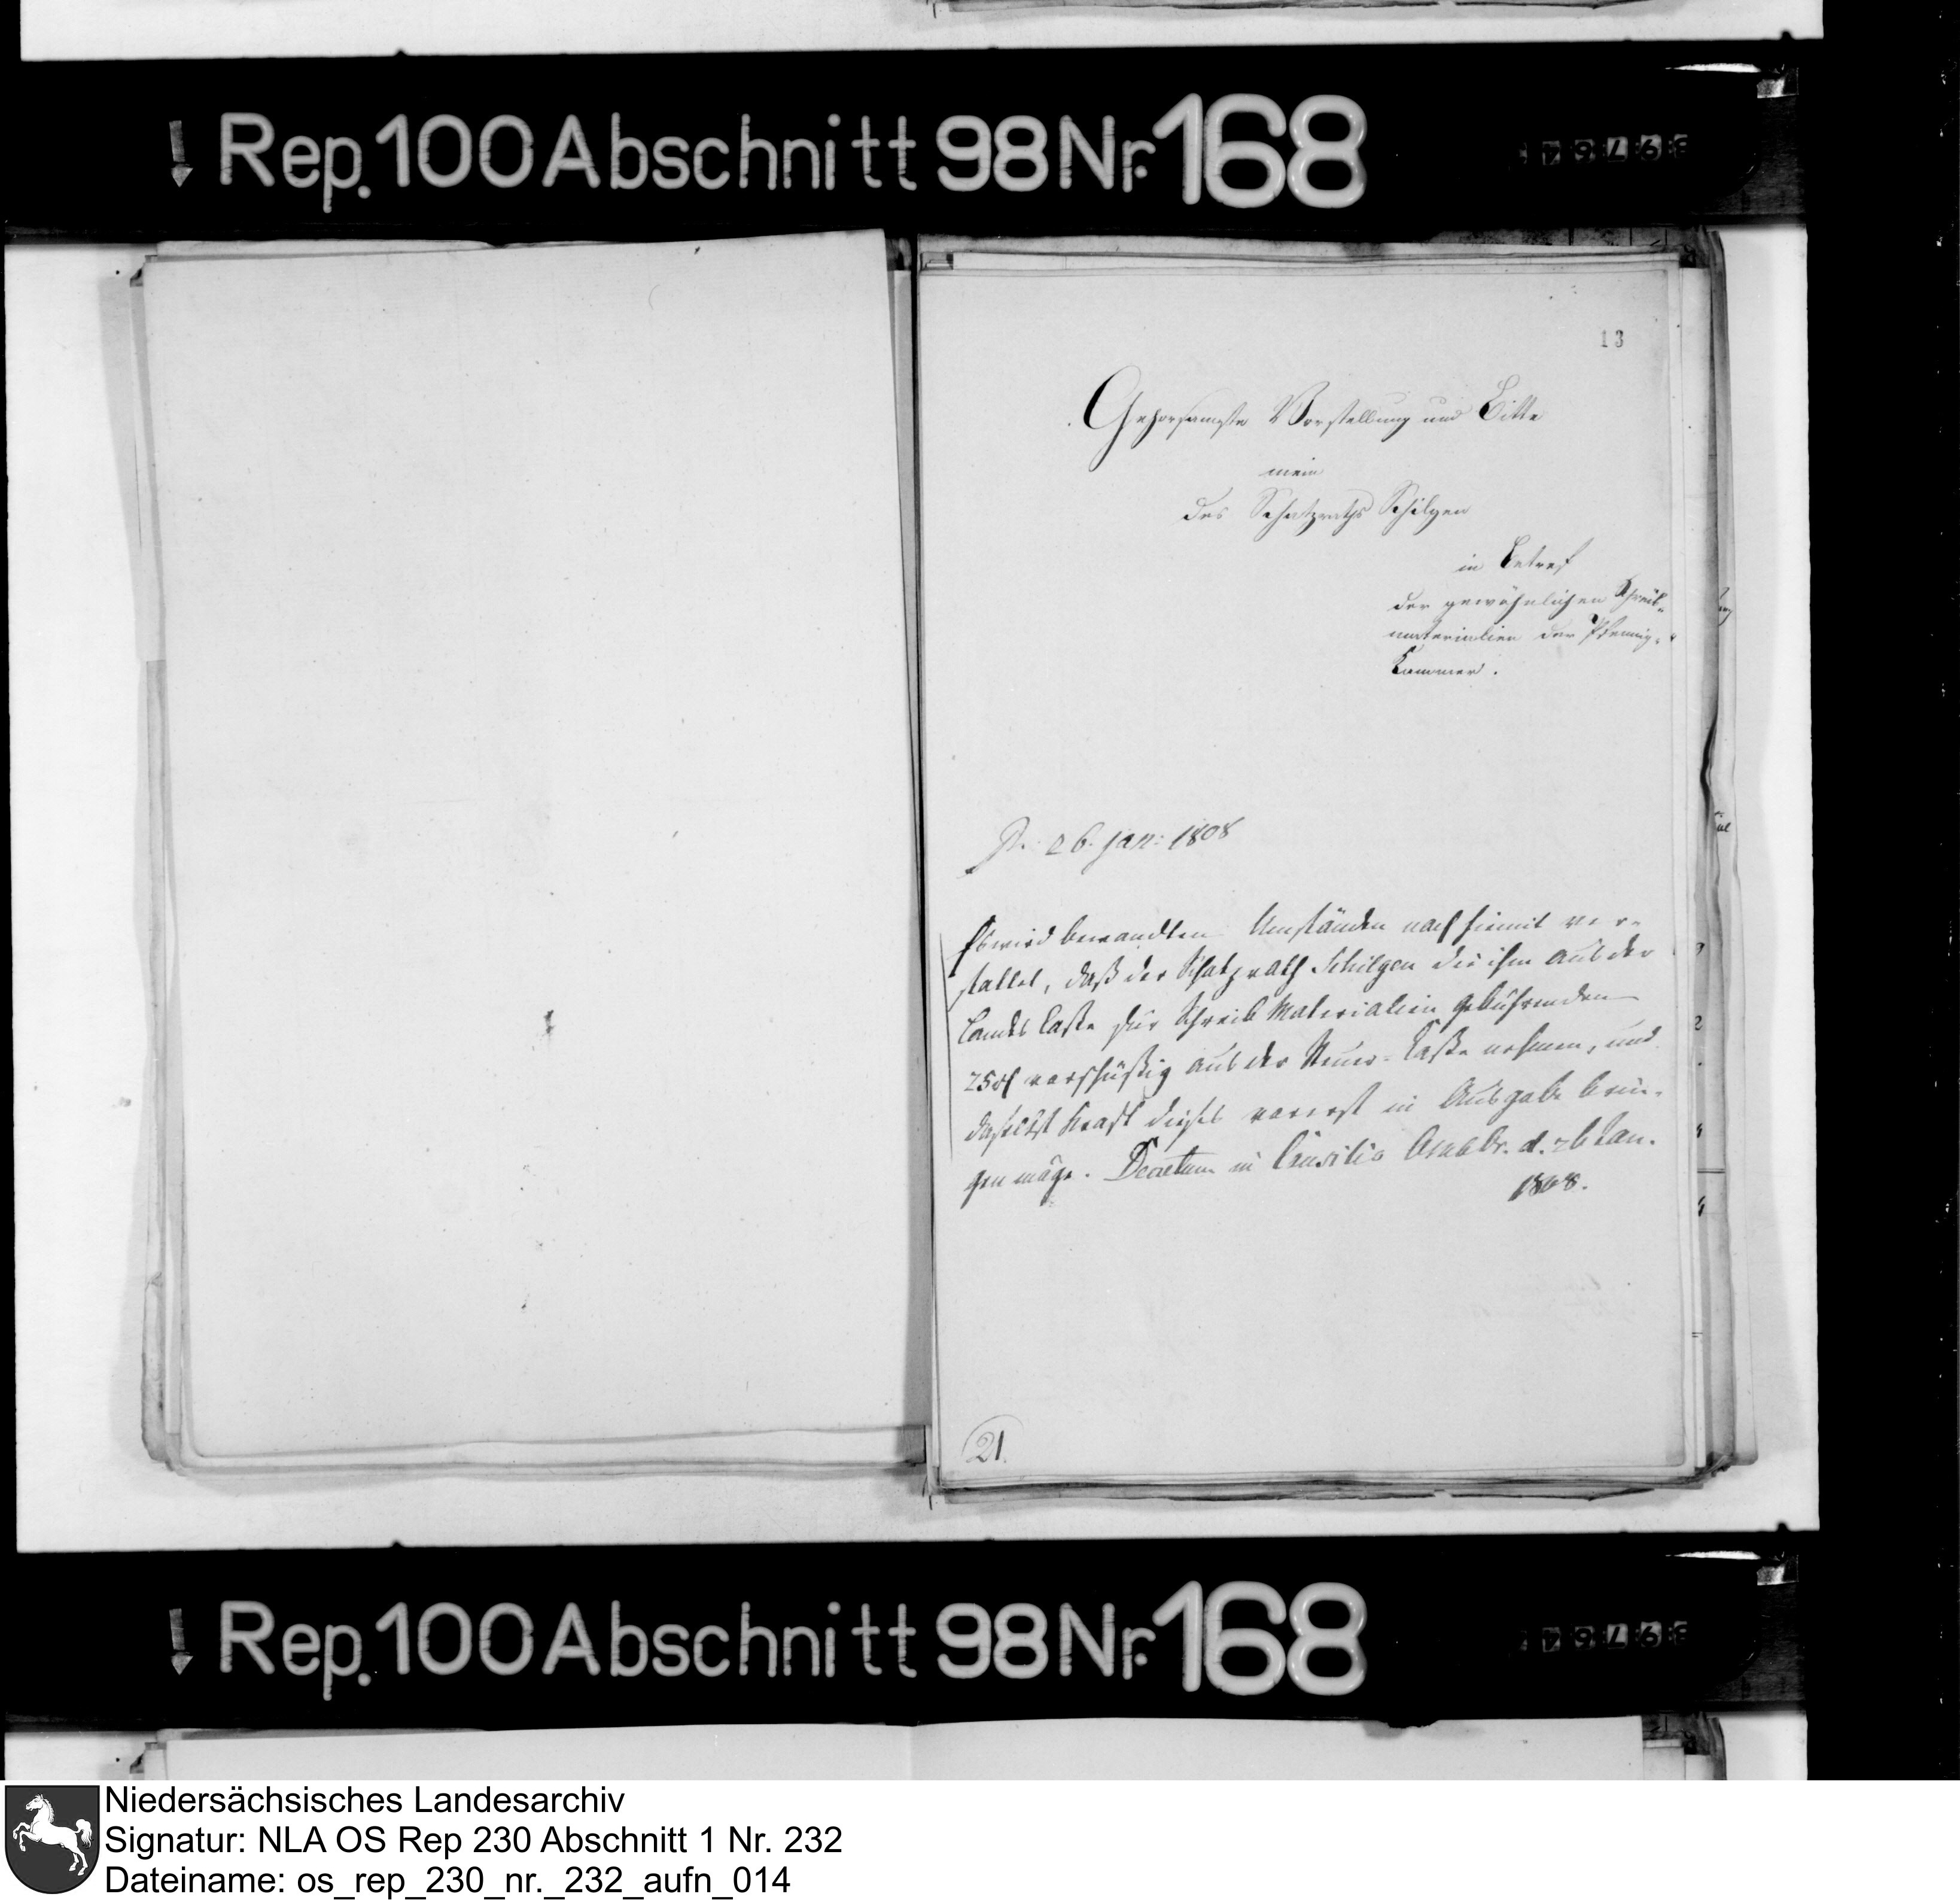 Rep. 100 Abschnitt 98 Nr. 168
13
Gehorsamste Vorstellung und Bitte
mein
des Schatzraths Schilgen
in Betref
der gewöhnlichen Schreib-
materialien der Pfennig-
Kammer.
P. 26. jan: 1808
Es wird bewandten Umständen nach hiemit ver-
stattet, daß der Schatzrath Schilgen die ihm aus der
Landes Casse für Schreib Materialien gebührenden
25 rt vorschüßig aus der Steuer-Casse nehmen, und
daselbst Kraft dieses vorerst in Ausgabe brin-
gen möge. Decretum in Consilio Osnabr. d. 26 Jan.
1808.
21.
Rep. 100 Abschnitt 98 Nr. 168
Niedersächsisches Landesarchiv
Signatur: NLA OS Rep 230 Abschnitt 1 Nr. 232
Dateiname: os_rep_230_nr._232_aufn_014